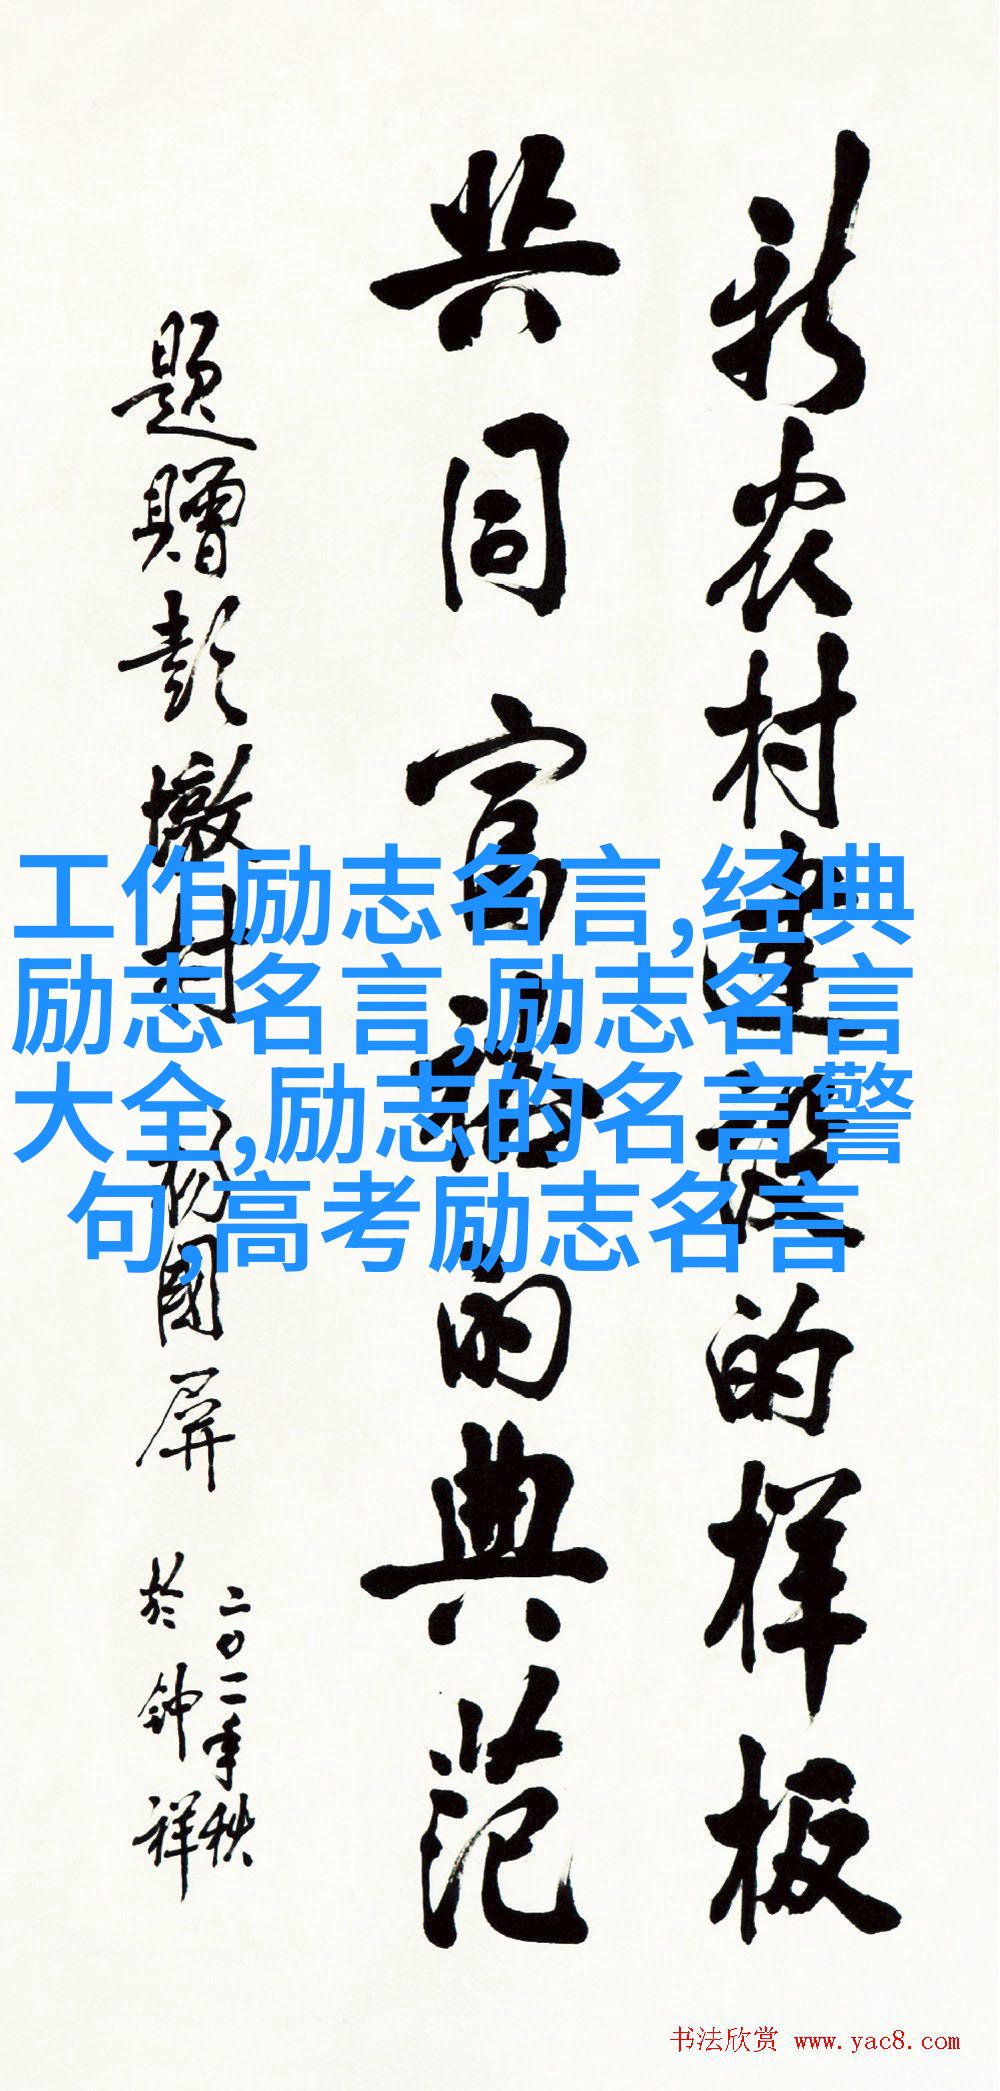 新农村建设的样板
共同富裕的典范
题赠彭墩村 杨国屏
二〇一一年秋
於钟祥
工作励志名言,经典
励志名言,励志名言
大全,励志的名言警
句,高考励志名言
书法欣赏 www.yac8.com